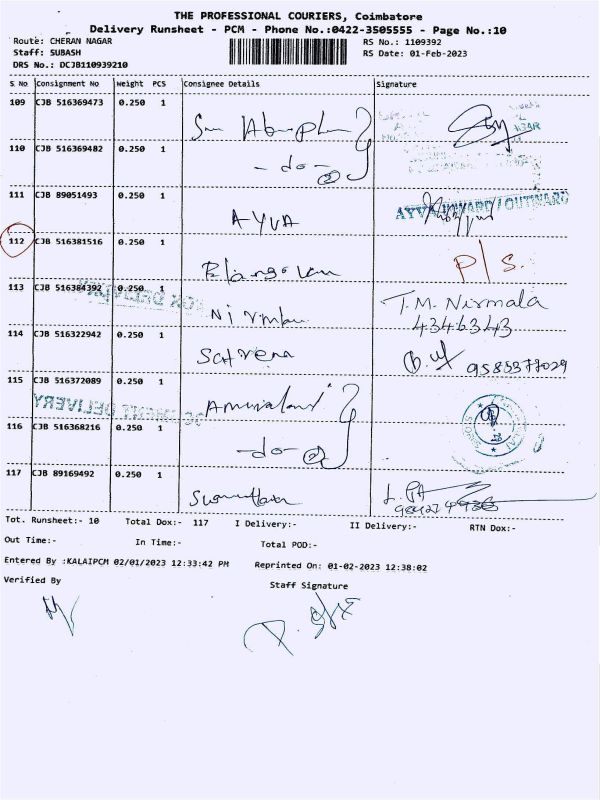 THE PROFESSIONAL COURIERS, Coimbatore
Delivery Runsheet - PCM - Phone No.:0422-3505555 - Page No.:10
Route: CHERAN NAGAR
RS No.: 1109392
Staff: SUBASH
RS Date: 01-Feb-2023
DRS No.: DCJB110939210
S No Consignment No Weight PCS Consignee Details Signature
109 CJB 516369473 0.250 1
110 CJB 516369482 0.250 1
-do- 2
111 CJB 89051493 0.250 1
AYVA
AYVA INWARD / OUTWARD
112 CJB 516381516 0.250 1
P/S.
113 CJB 516384392 0.250 1
BOX DELIVERY
T.M. Nirmala
4346343
114 CJB 516322942 0.250 1
9585377029
115 CJB 516372089 0.250 1
DOCUMENT DELIVERY
116 CJB 516368216 0.250 1
-do- 2
117 CJB 89169492 0.250 1
Tot. Runsheet:- 10 Total Dox:- 117 I Delivery:- II Delivery:- RTN Dox:-
Out Time:- In Time:- Total POD:-
Entered By :KALAIPCM 02/01/2023 12:33:42 PM Reprinted On: 01-02-2023 12:38:02
Verified By Staff Signature